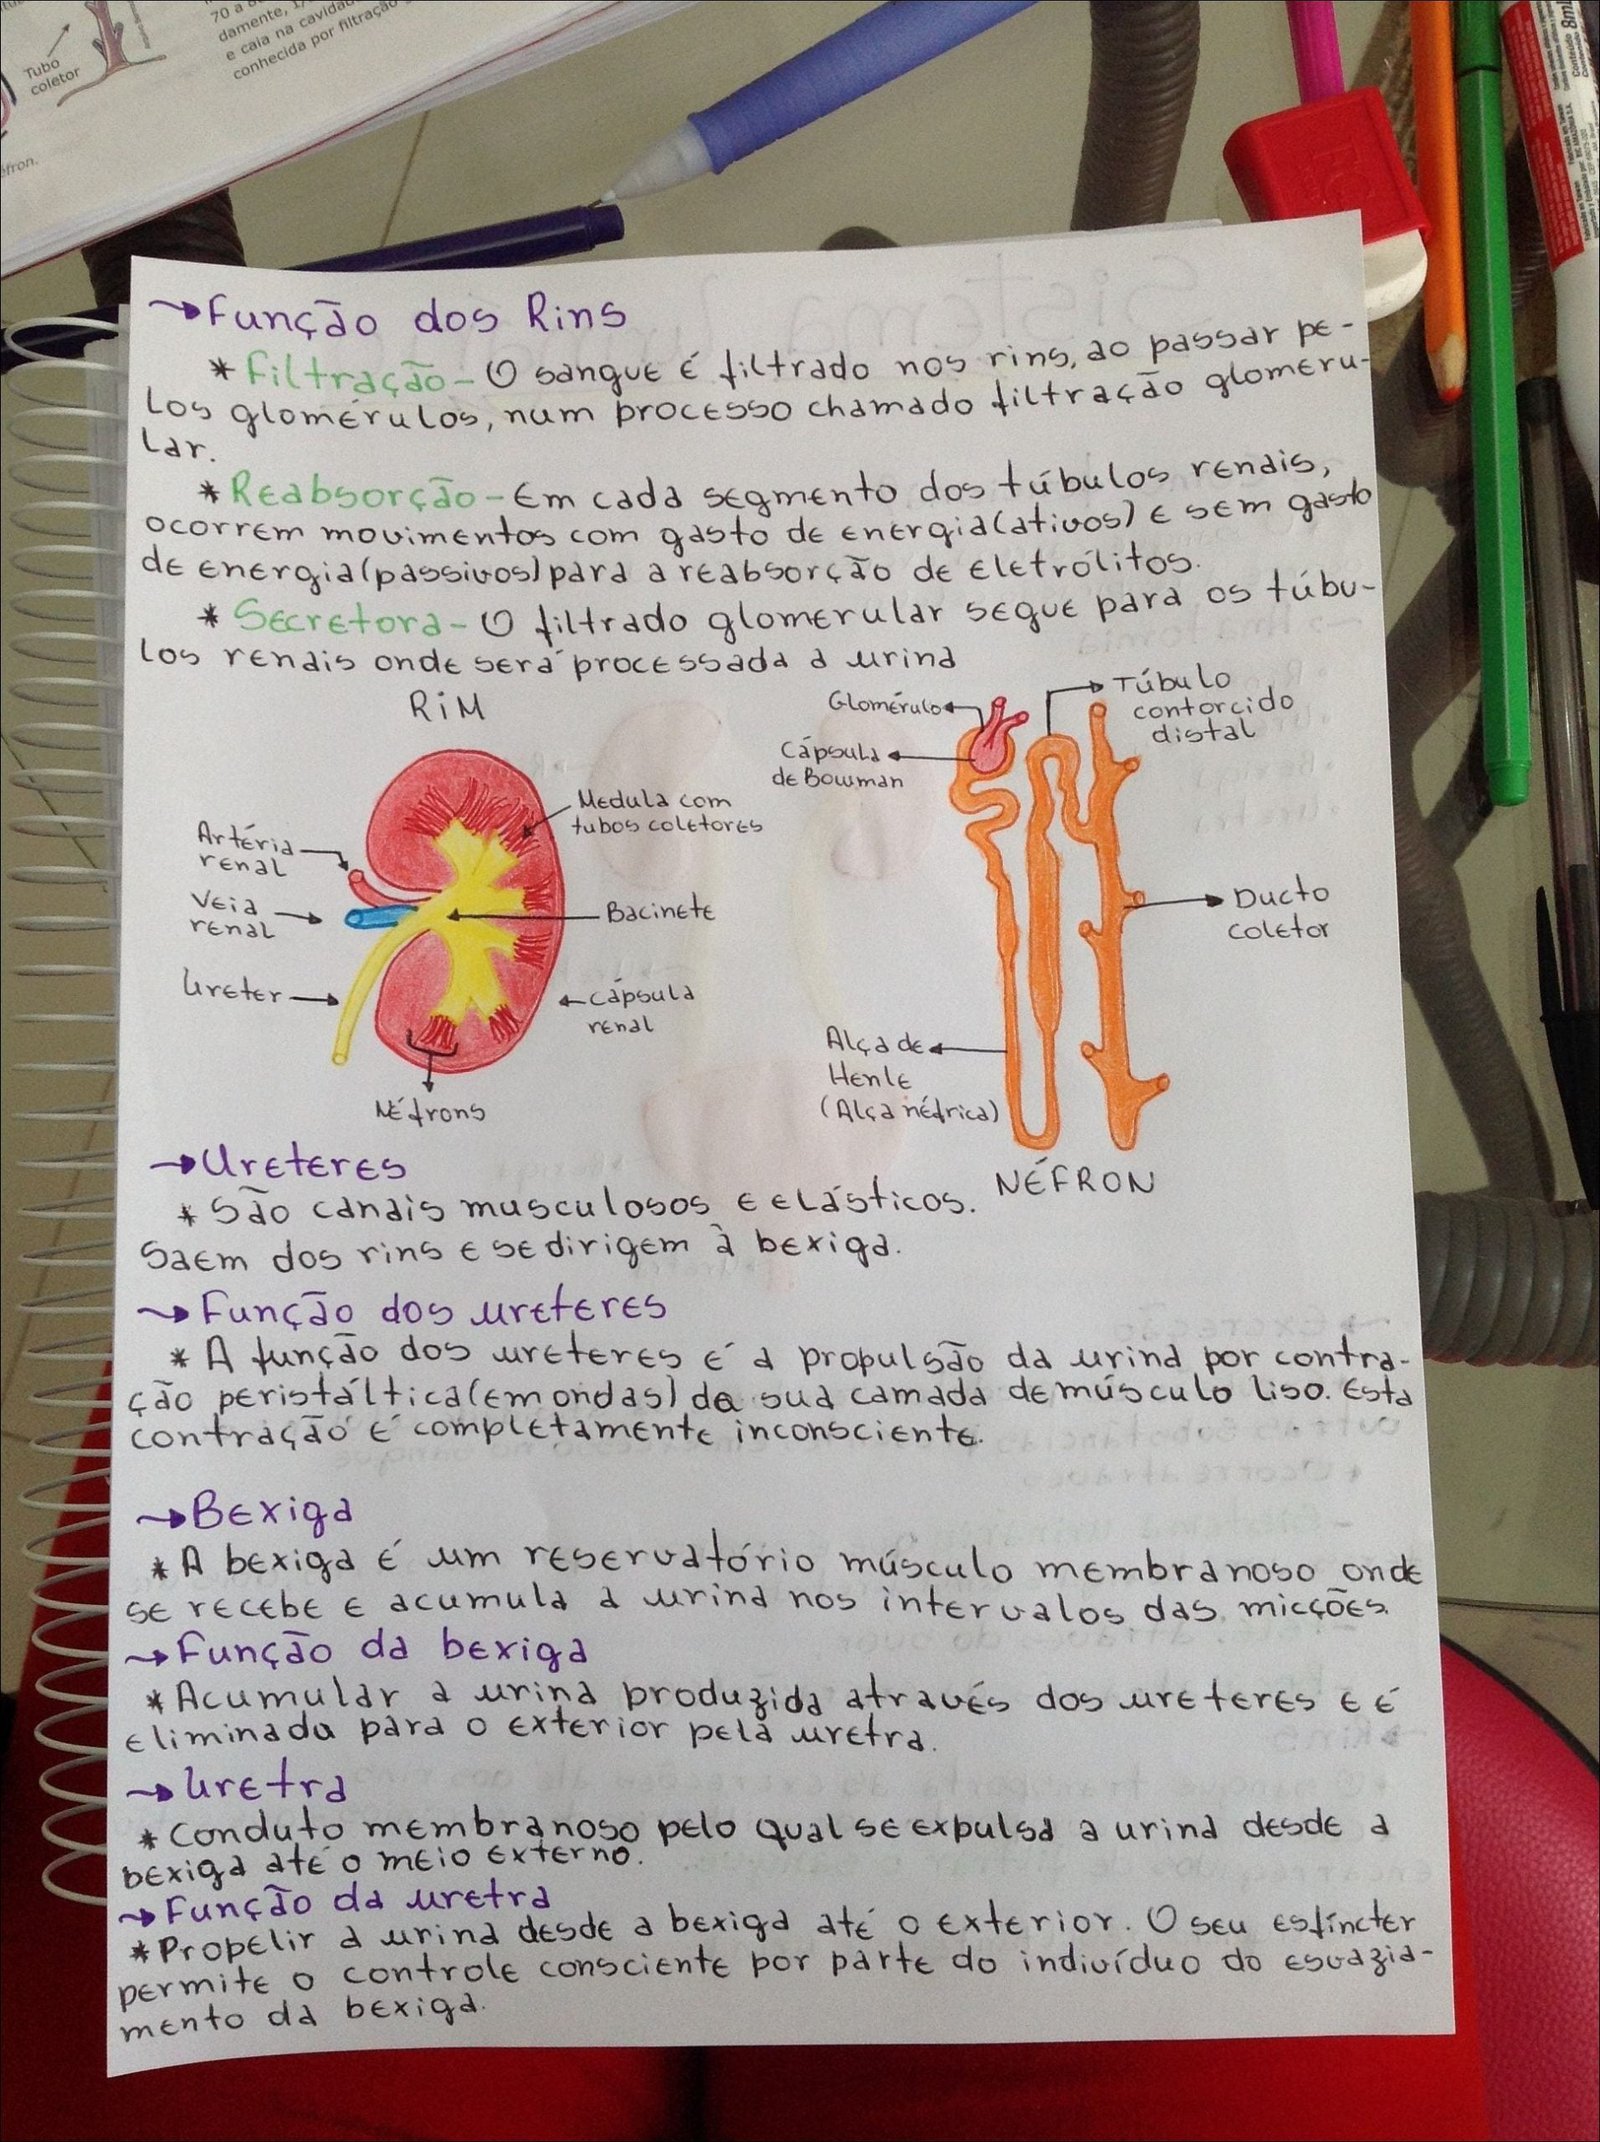 Tubo
coletor
70 a
damente, 1
e caia na cavidad
conhecida por filtração
éfron.
→ Função dos Rins
* Filtração - O sangue é filtrado nos rins, ao passar pe-
los glomérulos, num processo chamado filtração glomeru-
lar.
* Reabsorção - Em cada segmento dos túbulos renais,
ocorrem movimentos com gasto de energia (ativos) e sem gasto
de energia (passivos) para a reabsorção de eletrólitos.
* Secretora - O filtrado glomerular segue para os túbu-
los renais onde será processada a urina
RiM
Artéria
renal
Veia
renal
Ureter
Néfrons
Medula com
tubos coletores
Bacinete
Cápsula
renal
Glomérulo
Cápsula
de Bowman
Túbulo
contorcido
distal
Ducto
coletor
Alça de
Henle
(Alça néfrica)
NÉFRON
→ Ureteres
* São canais musculosos e elásticos.
Saem dos rins e se dirigem à bexiga.
→ Função dos ureteres
* A função dos ureteres é a propulsão da urina por contra-
ção peristáltica (em ondas) da sua camada de músculo liso. Esta
contração é completamente inconsciente.
→ Bexiga
* A bexiga é um reservatório músculo membranoso onde
se recebe e acumula a urina nos intervalos das micções.
→ Função da bexiga
* Acumular a urina produzida através dos ureteres e é
eliminada para o exterior pela uretra.
→ Uretra
* Conduto membranoso pelo qual se expulsa a urina desde a
bexiga até o meio externo.
→ Função da uretra
* Propelir a urina desde a bexiga até o exterior. O seu esfíncter
permite o controle consciente por parte do indivíduo do esvazia-
mento da bexiga.